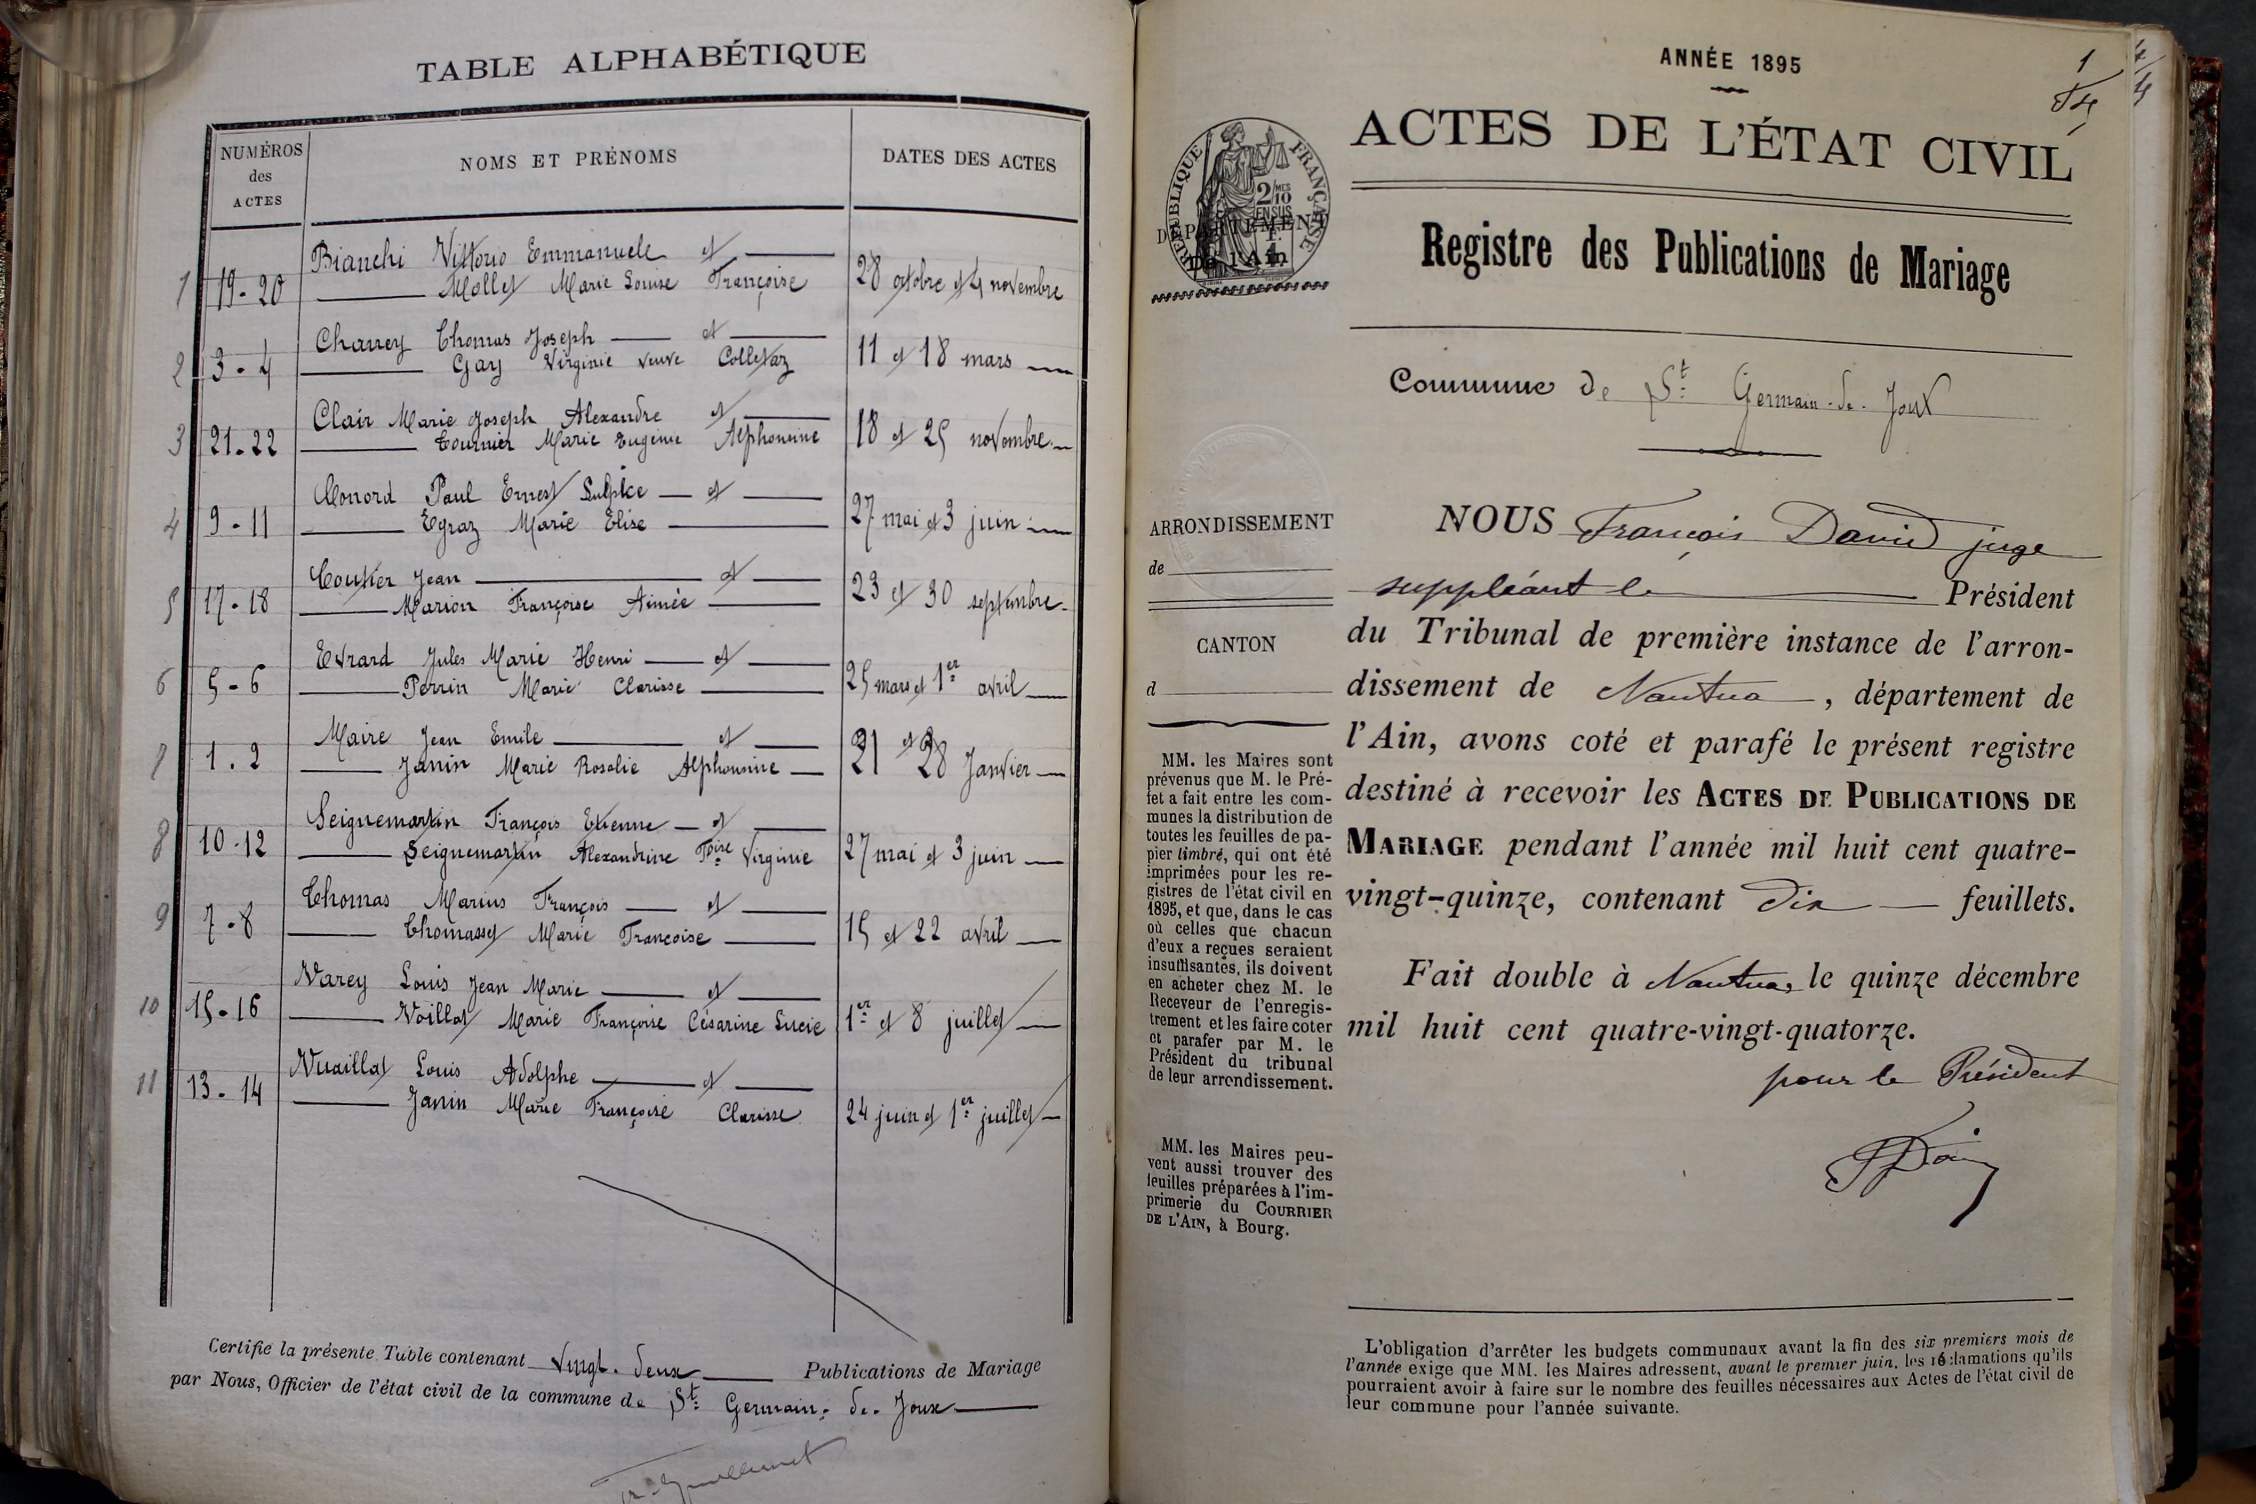 TABLE ALPHABÉTIQUE
NUMÉROS
des
ACTES
NOMS ET PRÉNOMS
DATES DES ACTES
1 19-20 Bianchi Vittorio Emmanuele et
Mollet Marie Louise Françoise 28 octobre et 4 novembre
2 3-4 Charrey Thomas Joseph et
Gay Virginie veuve Colletaz 11 et 18 mars
3 21-22 Clair Marie Joseph Alexandre et
Tournier Marie Eugénie Alphonsine 18 et 25 novembre
4 9-11 Conord Paul Ernest Sulpice et
Egraz Marie Elise 27 mai et 3 juin
5 17-18 Coutier Jean et
Marion Françoise Aimée 23 et 30 septembre
6 5-6 Evrard Jules Marie Henri et
Perrin Marie Clarisse 25 mars et 1er avril
7 1.2 Maire Jean Emile et
Janin Marie Rosalie Alphonsine 21 et 28 Janvier
8 10-12 Seignemartin François Etienne et
Seignemartin Alexandrine Fçoise Virginie 27 mai et 3 juin
9 7-8 Thomas Marius François et
Thomasset Marie Francoise 15 et 22 avril
10 15-16 Varey Louis Jean Marie et
Voillat Marie Françoise Césarine Lucie 1er et 8 juillet
11 13-14 Vuaillat Louis Adolphe et
Janin Marie Françoise Clarisse 24 juin et 1er juillet
Certifie la présente Table contenant Vingt-deux Publications de Mariage
par Nous, Officier de l'état civil de la commune de St Germain-de-Joux
ANNÉE 1895
1
ACTES DE L'ÉTAT CIVIL
RÉPUBLIQUE FRANÇAISE
2/10 MES
EN SUS
1 F.
DÉPARTEMENT
De l'Ain
Registre des Publications de Mariage
Commune de St Germain-de-Joux
ARRONDISSEMENT
de
CANTON
d
MM. les Maires sont
prévenus que M. le Pré-
fet a fait entre les com-
munes la distribution de
toutes les feuilles de pa-
pier timbré, qui ont été
imprimées pour les re-
gistres de l'état civil en
1895, et que, dans le cas
où celles que chacun
d'eux a reçues seraient
insuffisantes, ils doivent
en acheter chez M. le
Receveur de l'enregis-
trement et les faire coter
et parafer par M. le
Président du tribunal
de leur arrondissement.
MM. les Maires peu-
vent aussi trouver des
feuilles préparées à l'im-
primerie du COURRIER
DE L'AIN, à Bourg.
NOUS François David juge
suppléant le Président
du Tribunal de première instance de l'arron-
dissement de Nantua, département de
l'Ain, avons coté et parafé le présent registre
destiné à recevoir les ACTES DE PUBLICATIONS DE
MARIAGE pendant l'année mil huit cent quatre-
vingt-quinze, contenant dix feuillets.
Fait double à Nantua, le quinze décembre
mil huit cent quatre-vingt-quatorze.
pour le Président
L'obligation d'arrêter les budgets communaux avant la fin des six premiers mois de
l'année exige que MM. les Maires adressent, avant le premier juin, les réclamations qu'ils
pourraient avoir à faire sur le nombre des feuilles nécessaires aux Actes de l'état civil de
leur commune pour l'année suivante.